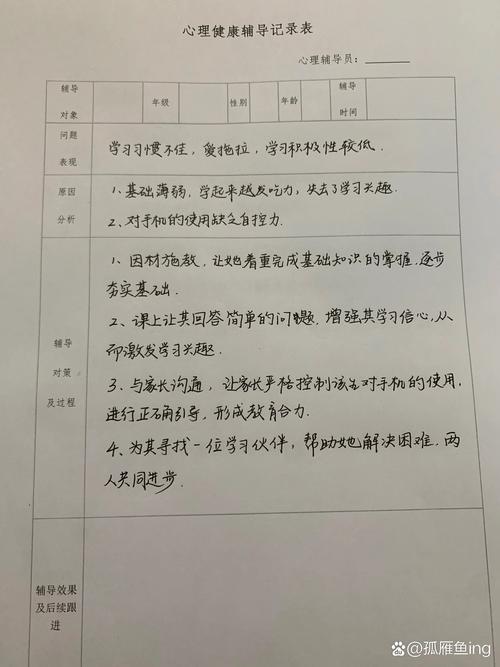 心理健康辅导记录表
心理辅导员:
辅导对象 年级 性别 年龄 辅导时间
问题表现
学习习惯不佳，爱拖拉，学习积极性较低.
原因分析
1、基础薄弱，学起来越发吃力，失去了学习兴趣.
2、对手机的使用缺乏自控力.
辅导对策及过程
1、因材施教，让她着重完成基础知识的掌握，逐步
夯实基础.
2、课上让其回答简单的问题，增强其学习信心，从
而激发学习兴趣.
3、与家长沟通，让家长严格控制该生对手机的使用，
进行正确引导，形成教育合力.
4、为其寻找一位学习伙伴，帮助她解决困难，两
人共同进步.
辅导效果
及后续跟
进
@孤雁鱼ing